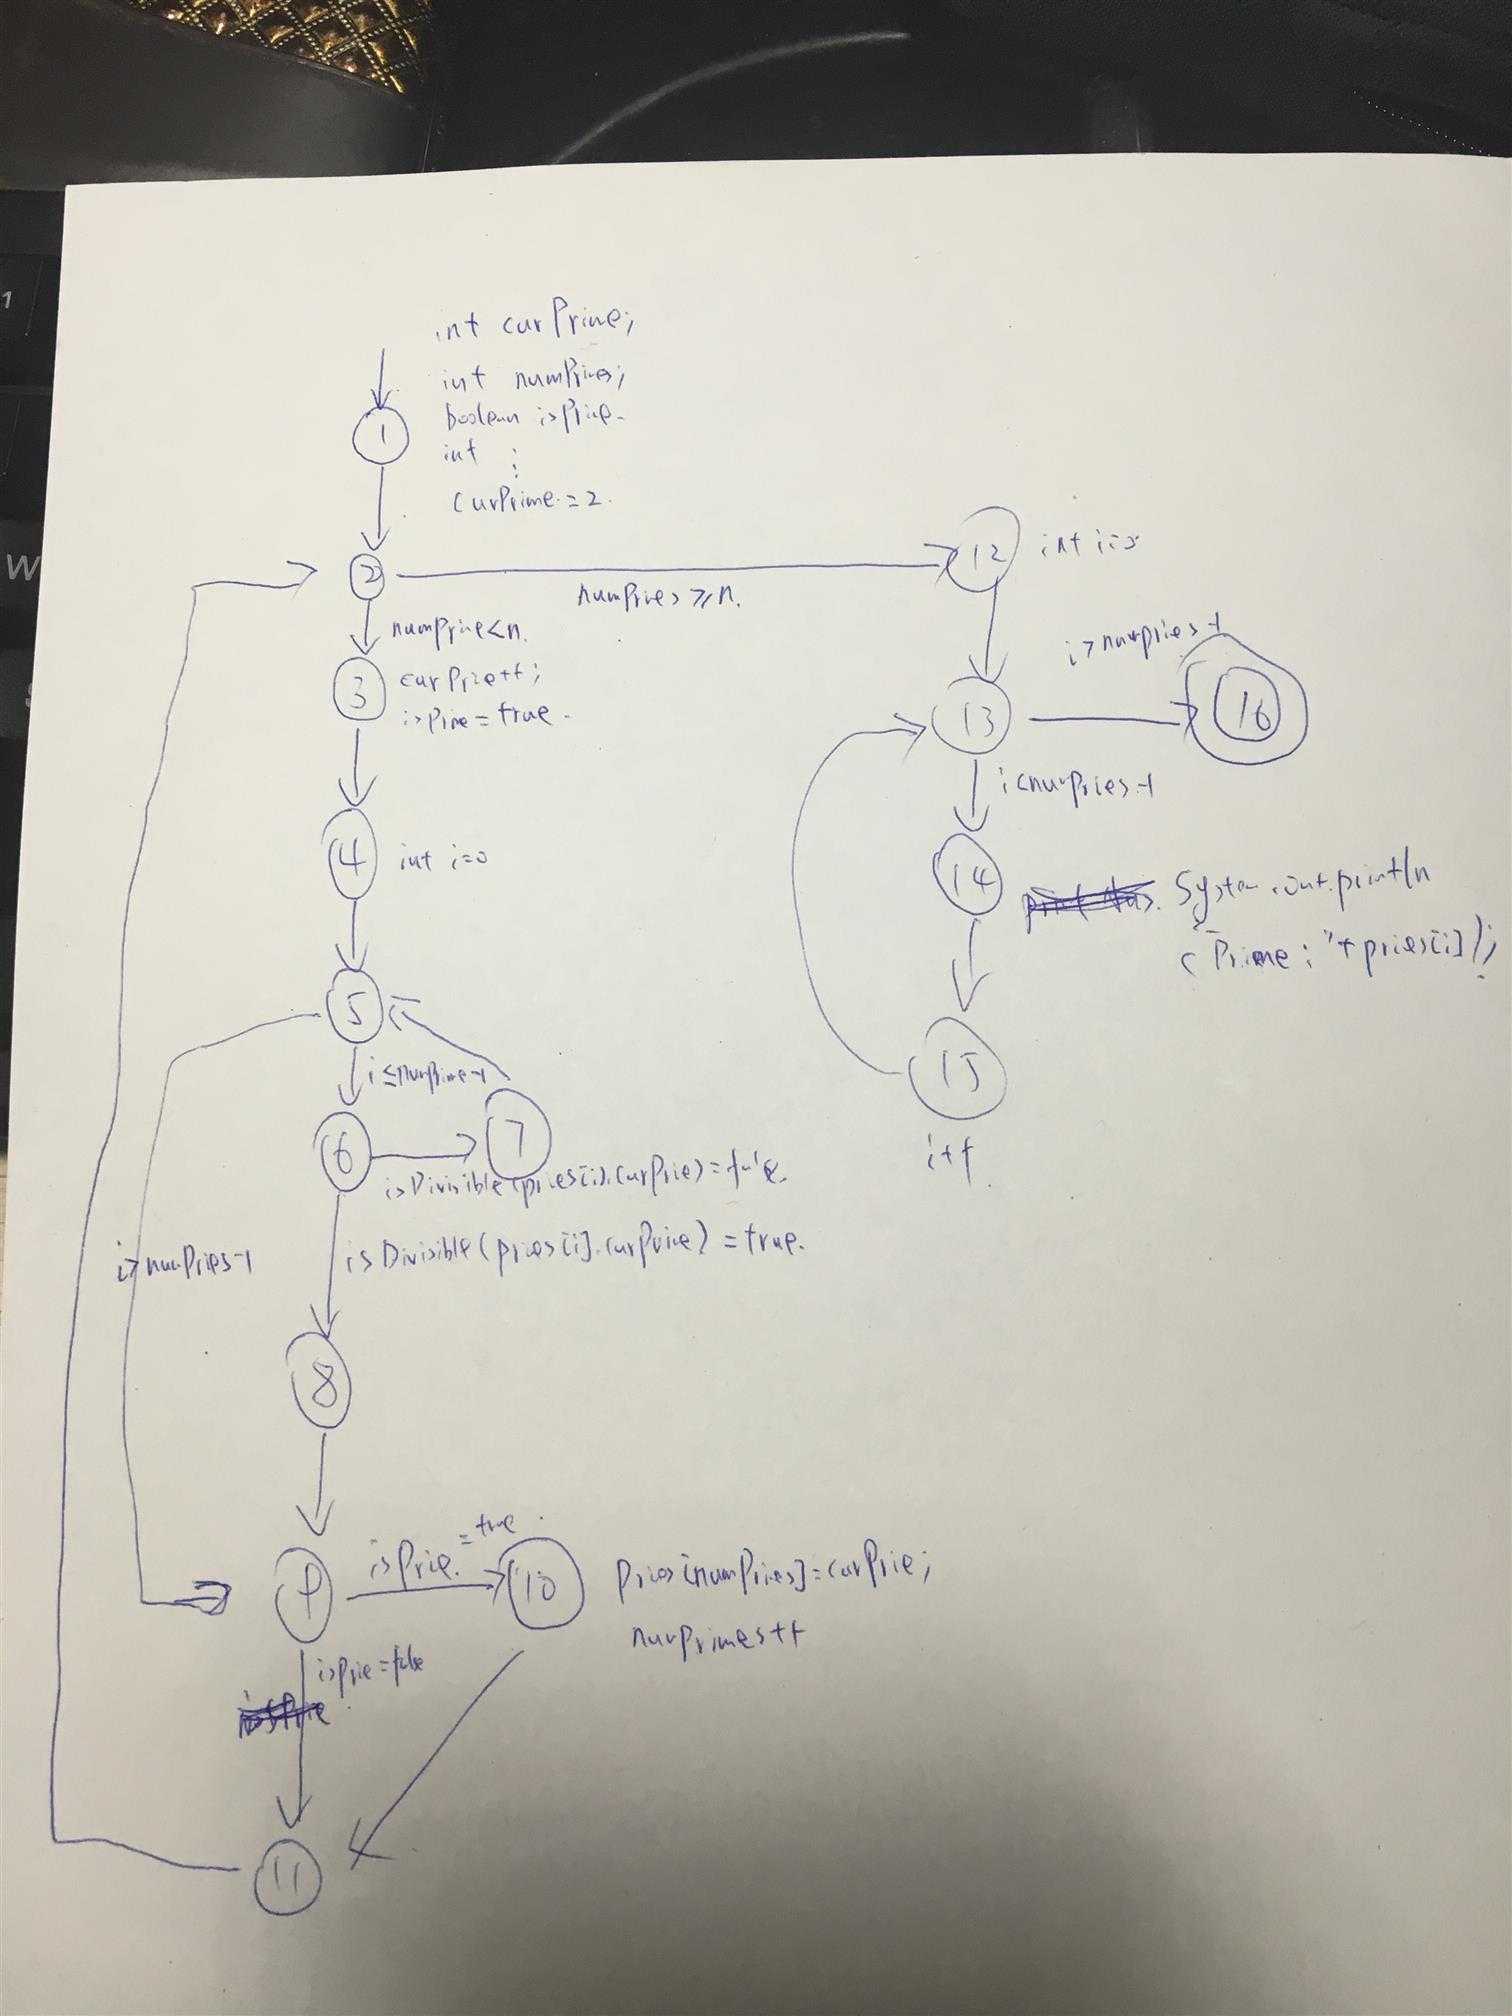 int curPrime;
int numPrimes;
boolean isPrime.
int ⋮
curPrime = 2.
1
2
numPrimes ≥ n.
12
int i=0
numPrime<n.
3
curPrime++;
isPrime = true.
i>numPrimes-1
13
16
i<numPrimes-1
4
int i=0
14
System.out.println
("Prime: "+primes[i]);
5
i≤numPrime-1
15
i++
6
7
isDivisible(primes[i].curPrime) = false.
i>numPrimes-1
isDivisible(primes[i].curPrime) = true.
8
9
isPrime = true.
10
Primes[numPrimes]=curPrime;
numPrimes++
isPrime=false
11
W
1